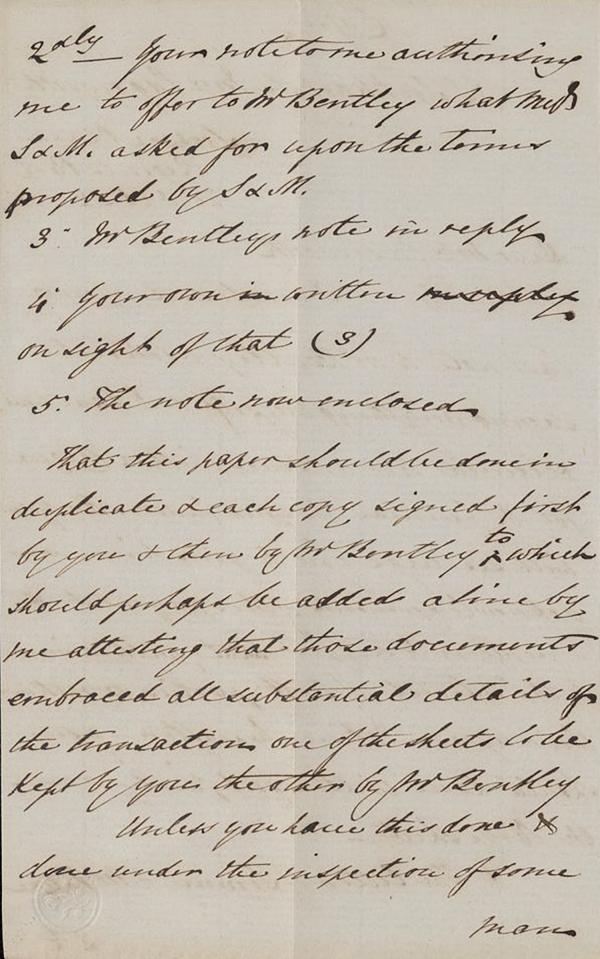 2dly — Your note to me authorising
me to offer to Mr Bentley what Messrs
S & M. asked for upon the terms
proposed by S & M.
3. Mr Bentleys note in reply
4 Your own in written in reply
on sight of that (3)
5. The note now enclosed
That this paper should be done in
duplicate & each copy signed first
by you & then by Mr Bentley to which
should perhaps be added a line by
me attesting that those documents
embraced all substantial details of
the transaction one of the sheets to be
kept by you the other by Mr Bentley
Unless you have this done &
done under the inspection of some
man